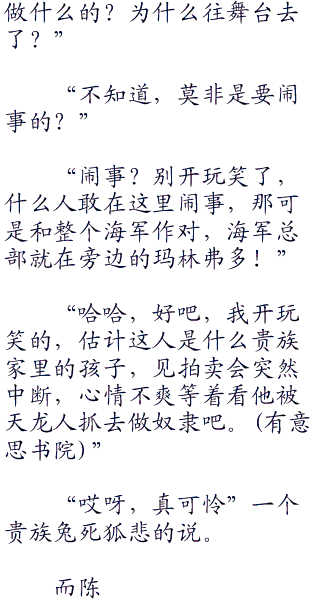 做什么的？为什么往舞台去
了？”
“不知道，莫非是要闹
事的？”
“闹事？别开玩笑了，
什么人敢在这里闹事，那可
是和整个海军作对，海军总
部就在旁边的玛林弗多！”
“哈哈，好吧，我开玩
笑的，估计这人是什么贵族
家里的孩子，见拍卖会突然
中断，心情不爽等着看他被
天龙人抓去做奴隶吧。(有意
思书院)”
“哎呀，真可怜”一个
贵族兔死狐悲的说。
而陈